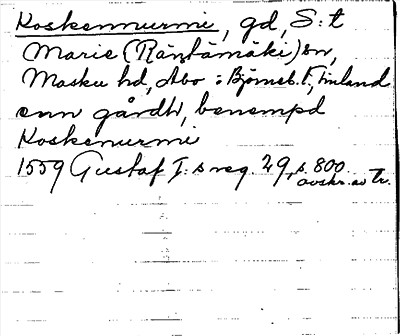 Koskennurmi, gd, S:t
Marie (Räntämäki) sn,
Masku hd, Åbo o: Björneb. l., Finland
enn gårdh, benempd
Koskenurmi
1559 Gustaf I:s reg. 29, s. 800.
avskr. av Tr.